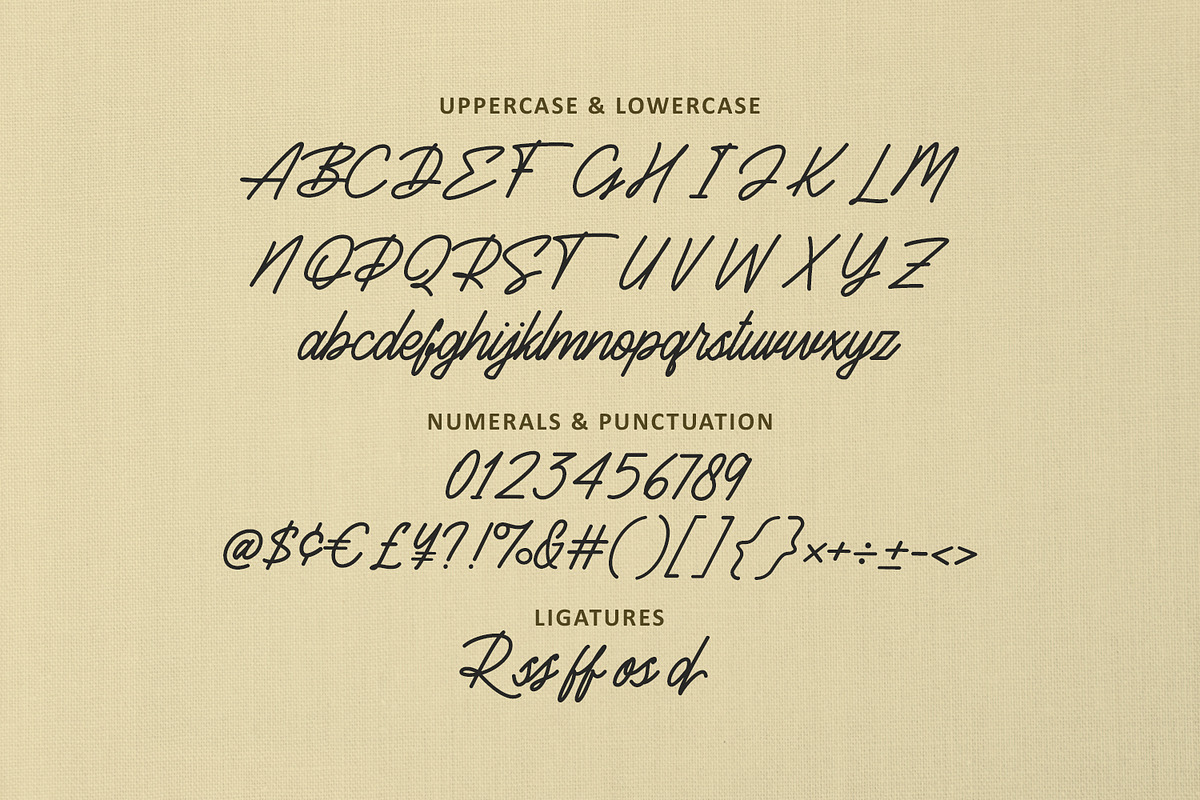 UPPERCASE & LOWERCASE
ABCDEFGHIJKLM
NOPQRSTUVWXYZ
abcdefghijklmnopqrstuvwxyz
NUMERALS & PUNCTUATION
0123456789
@$¢€£¥?!%&#()[]{}×+÷±-<>
LIGATURES
R ss ff os d